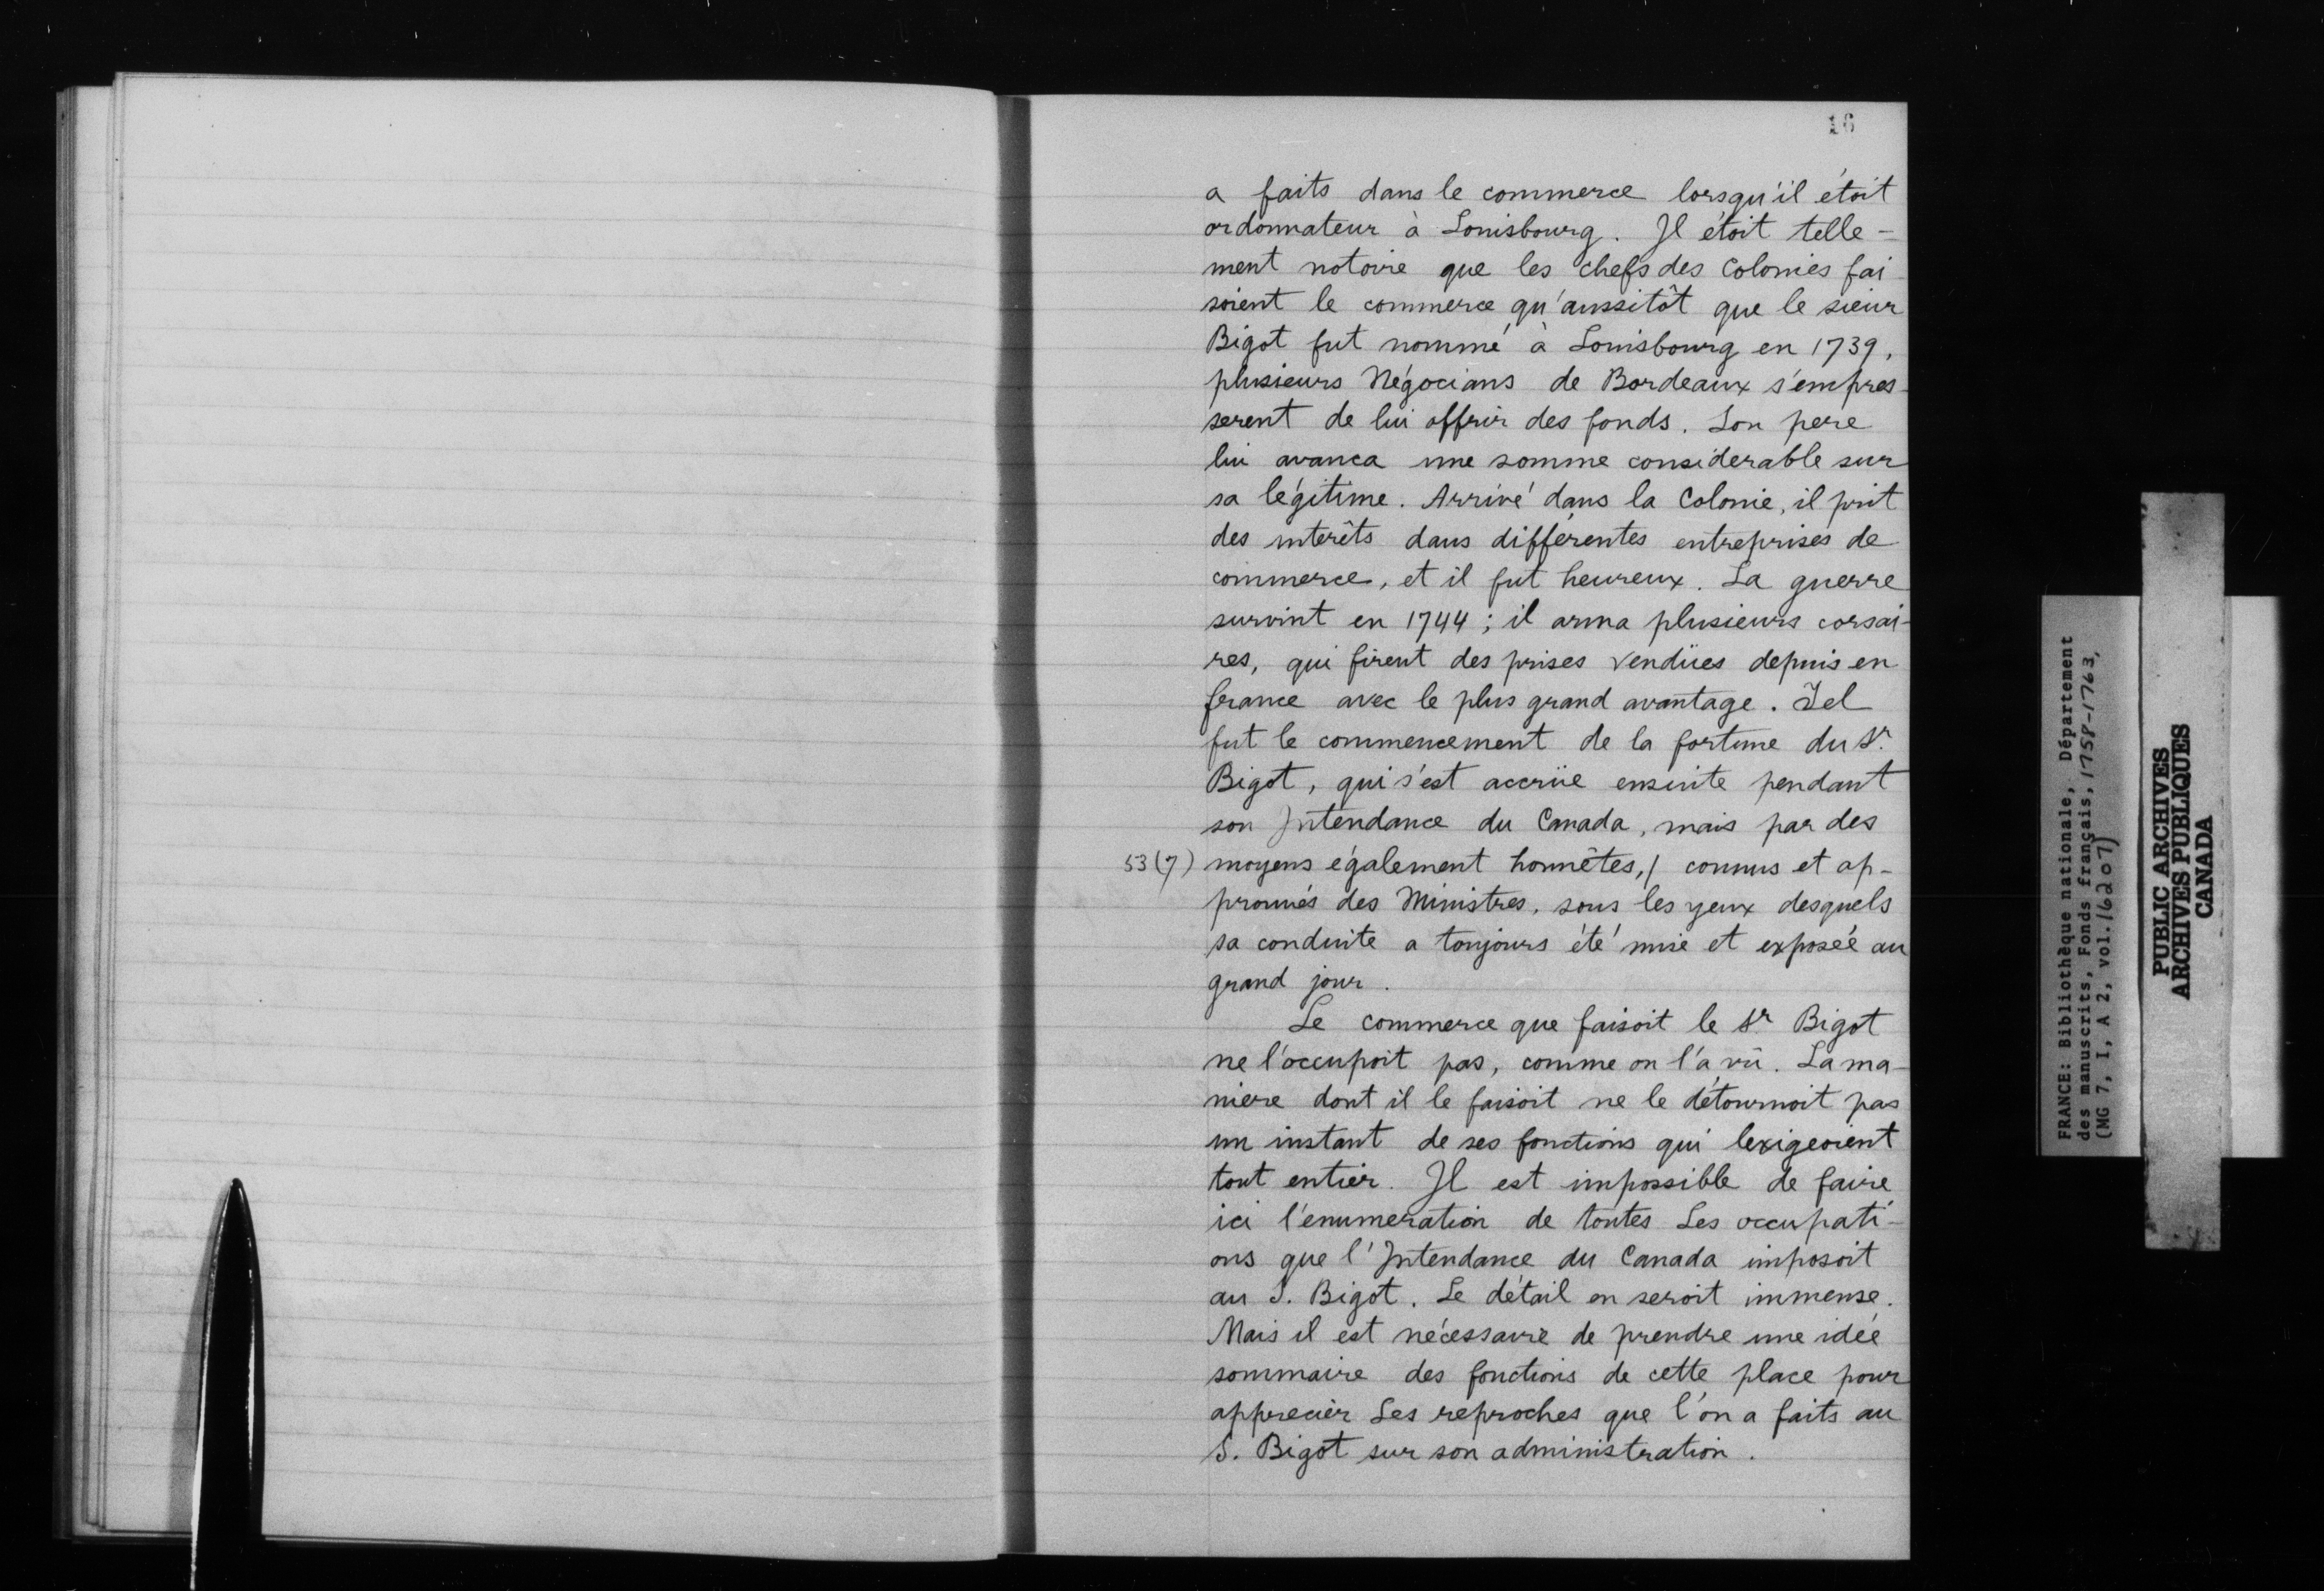 16
a faits dans le commerce lorsqu'il étoit
ordonnateur à Louisbourg. Il étoit telle-
ment notoire que les chefs des Colonies fai-
soient le commerce qu'aussitôt que le sieur
Bigot fut nommé à Louisbourg en 1739,
plusieurs Négocians de Bordeaux s'empres-
serent de lui offrir des fonds. Son pere
lui avanca une somme considerable sur
sa légitime. Arrivé dans la Colonie, il prit
des intérêts dans différentes entreprises de
commerce, et il fut heureux. La guerre
survint en 1744; il arma plusieurs corsai-
res, qui firent des prises vendües depuis en
france avec le plus grand avantage. Tel
fut le commencement de la fortune du Sr.
Bigot, qui s'est accrüe ensuite pendant
son Intendance du Canada, mais par des
53(7) moyens également honnêtes,/ connus et ap-
prouvés des Ministres, sous les yeux desquels
sa conduite a toujours été mise et exposée au
grand jour.
Le commerce que faisoit le Sr Bigot
ne l'occupoit pas, comme on l'a vû. La ma-
niere dont il le faisoit ne le détournoit pas
un instant de ses fonctions qui lexigeoient
tout entier. Il est impossible de faire
ici l'enumeration de toutes Les occupati-
ons que l'Intendance du Canada imposoit
au S. Bigot. Le détail en seroit immense.
Mais il est nécessaire de prendre une idée
sommaire des fonctions de cette place pour
apprecier Les reproches que l'on a faits au
S. Bigot sur son administration.
FRANCE: Bibliothèque nationale, Département
des manuscrits, Fonds français, 1758-1763,
(MG 7, I, A 2, vol. 16207)
PUBLIC ARCHIVES
ARCHIVES PUBLIQUES
CANADA